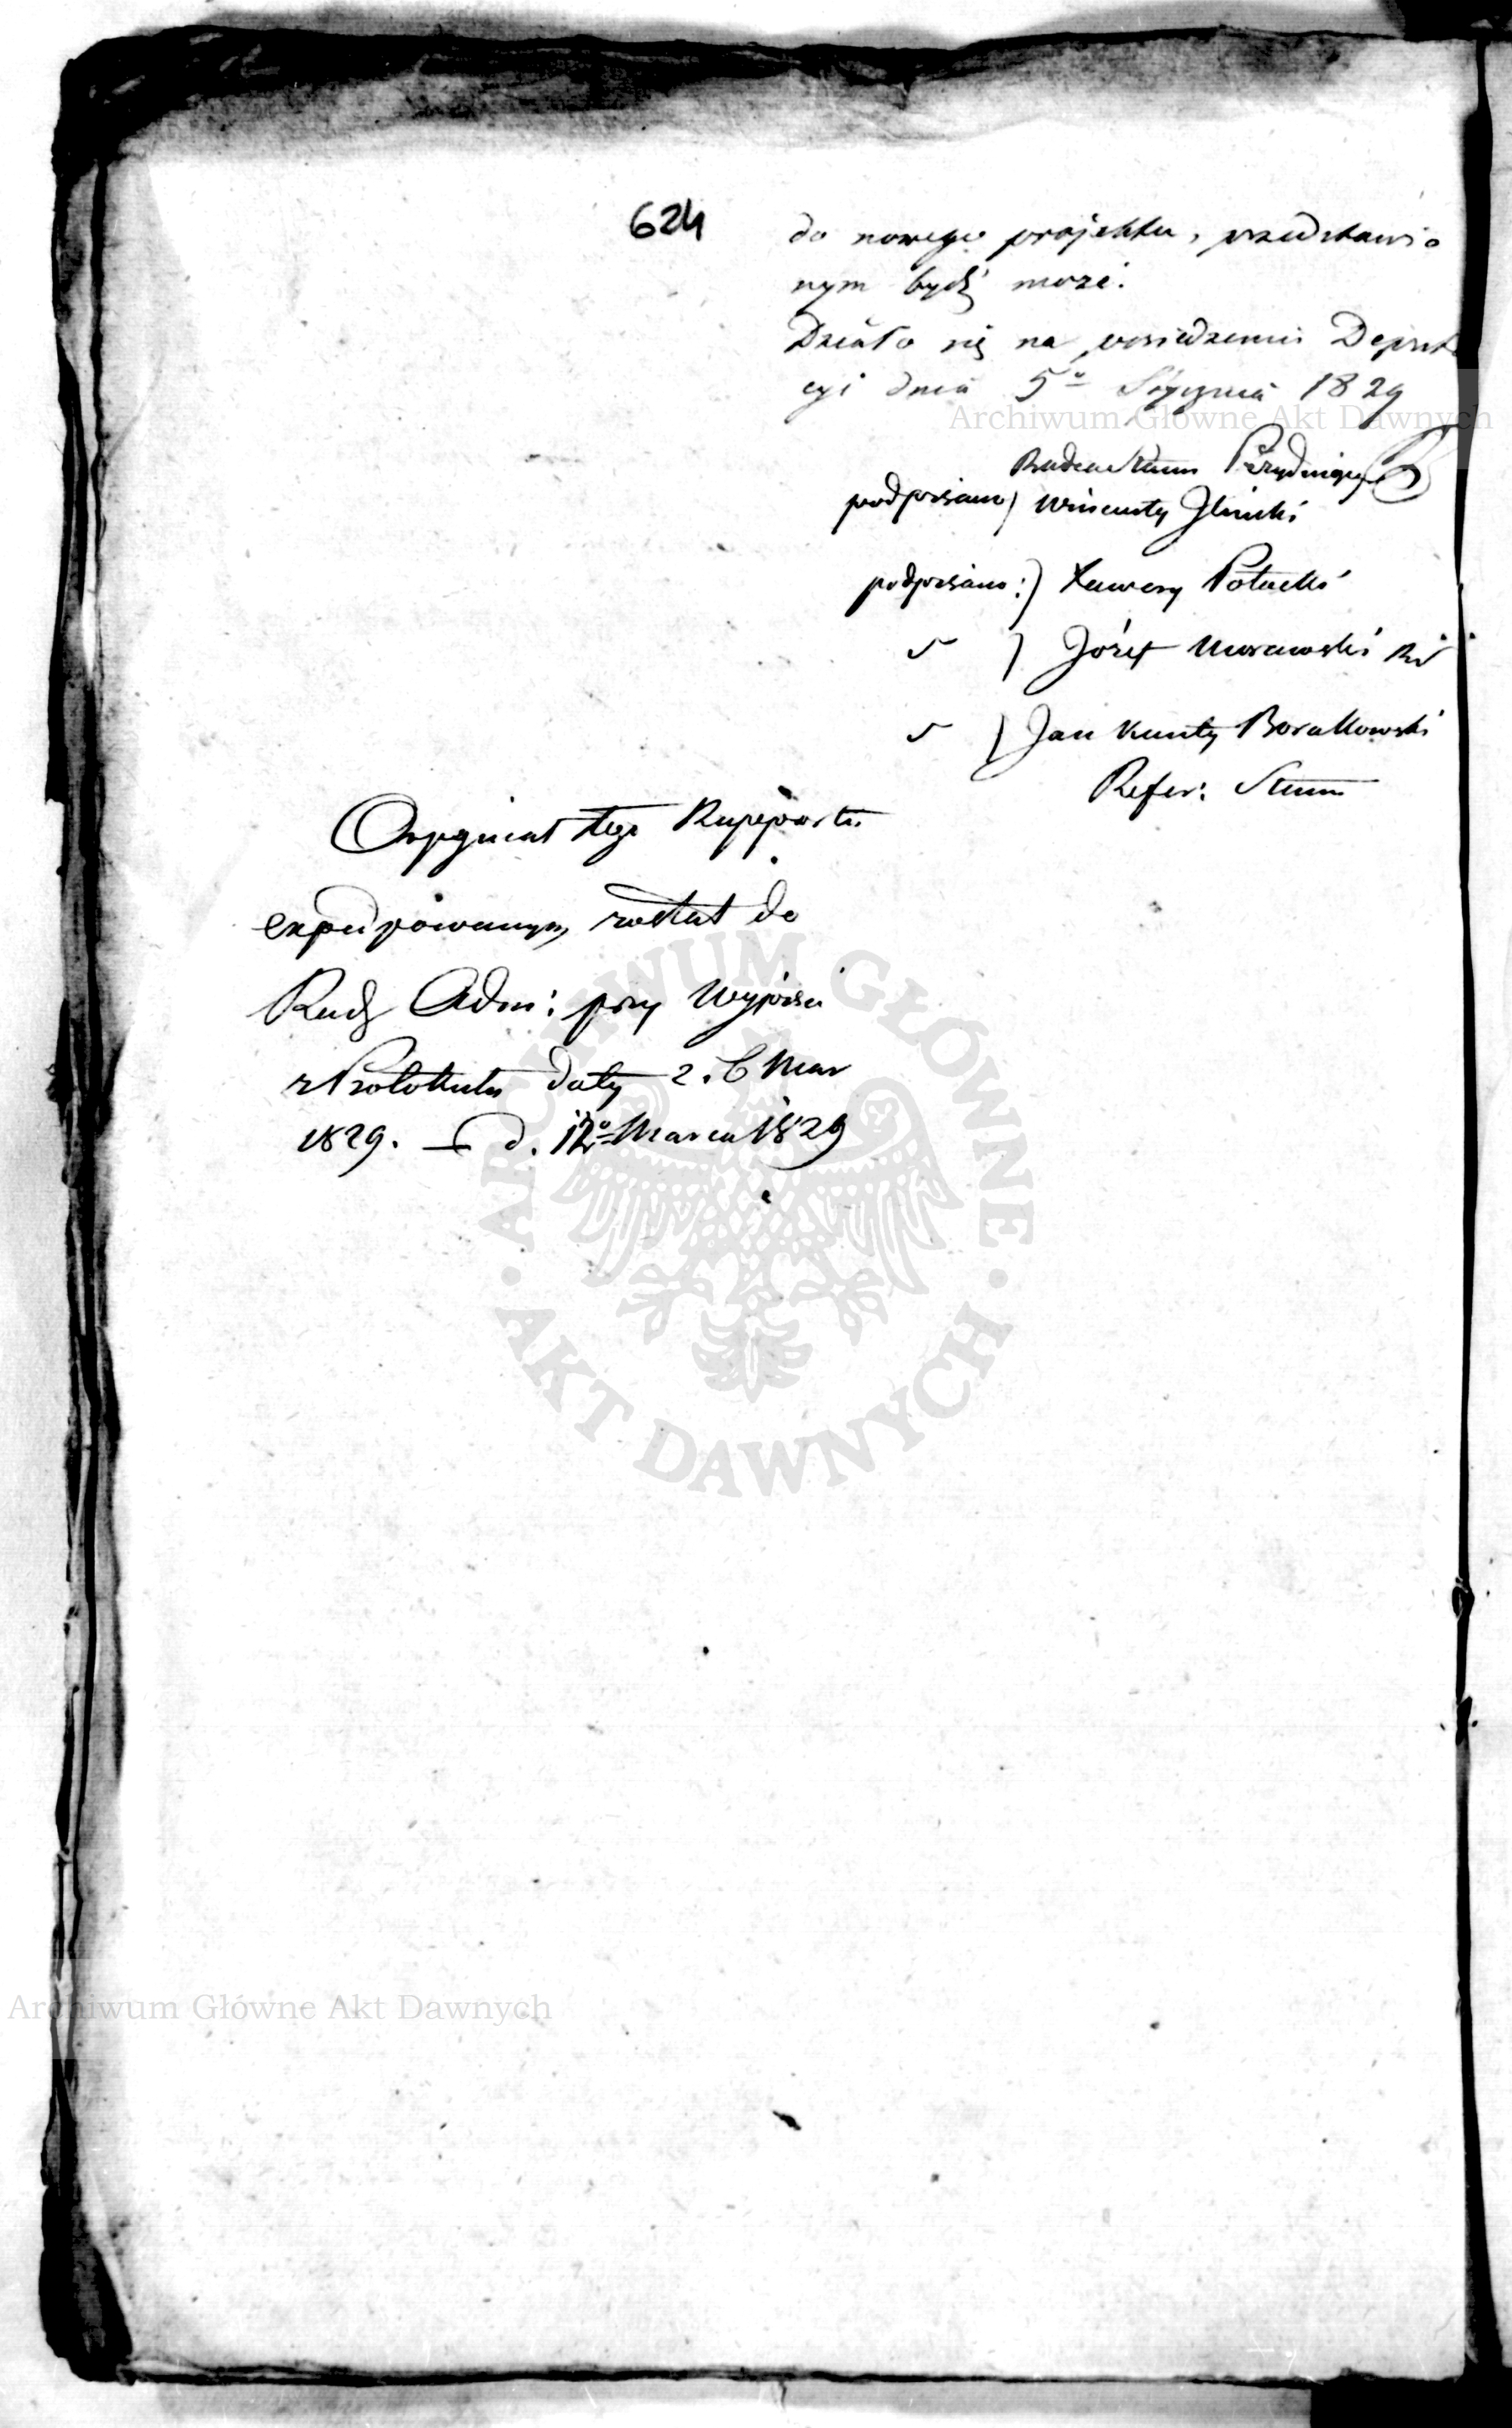 624
do nowego projektu, przedstawio
nym bydź może.
Działo się na posiedzeniu Deputa
cyi dnia 5º Stycznia 1829
Radca Stanu Prezydujący
podpisano) Wincenty Jliński
podpisano:) Xawery Potocki
) Józef Morawski
) Jan Kanty Borakowski
Refer: Stanu
Orygniał tego Rapportu
expedyowanym został do
Rady Adm: przy Wypisie
z Protokułu daty 2. b Mar
1829. d. 12º Marca 1829
Archiwum Główne Akt Dawnych
ARCHIWUM GŁÓWNE · AKT DAWNYCH ·
Archiwum Główne Akt Dawnych